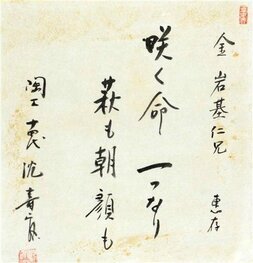 金岩基仁兄
惠存
咲く命 一つなり
萩も朝顔も
沈寿官